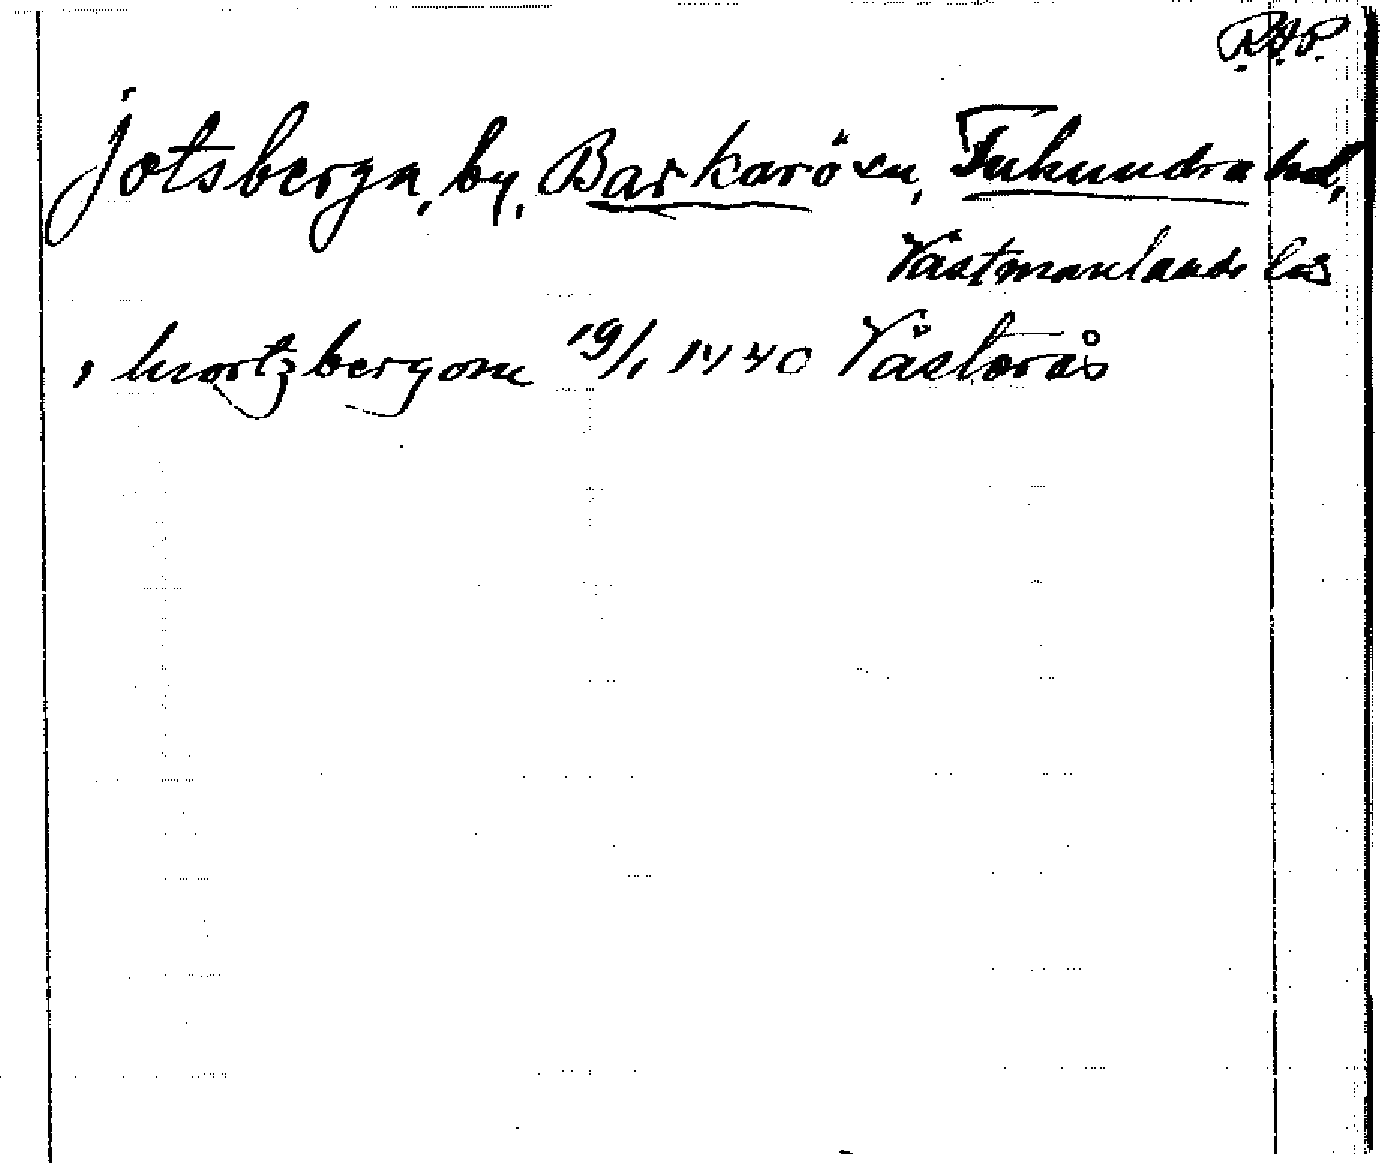 R.A.P.
Jotsberga, by, Barkarö sn, Tuhundra hd,
Västmanlands län
i hiortzbergom 19/1 1440 Västerås